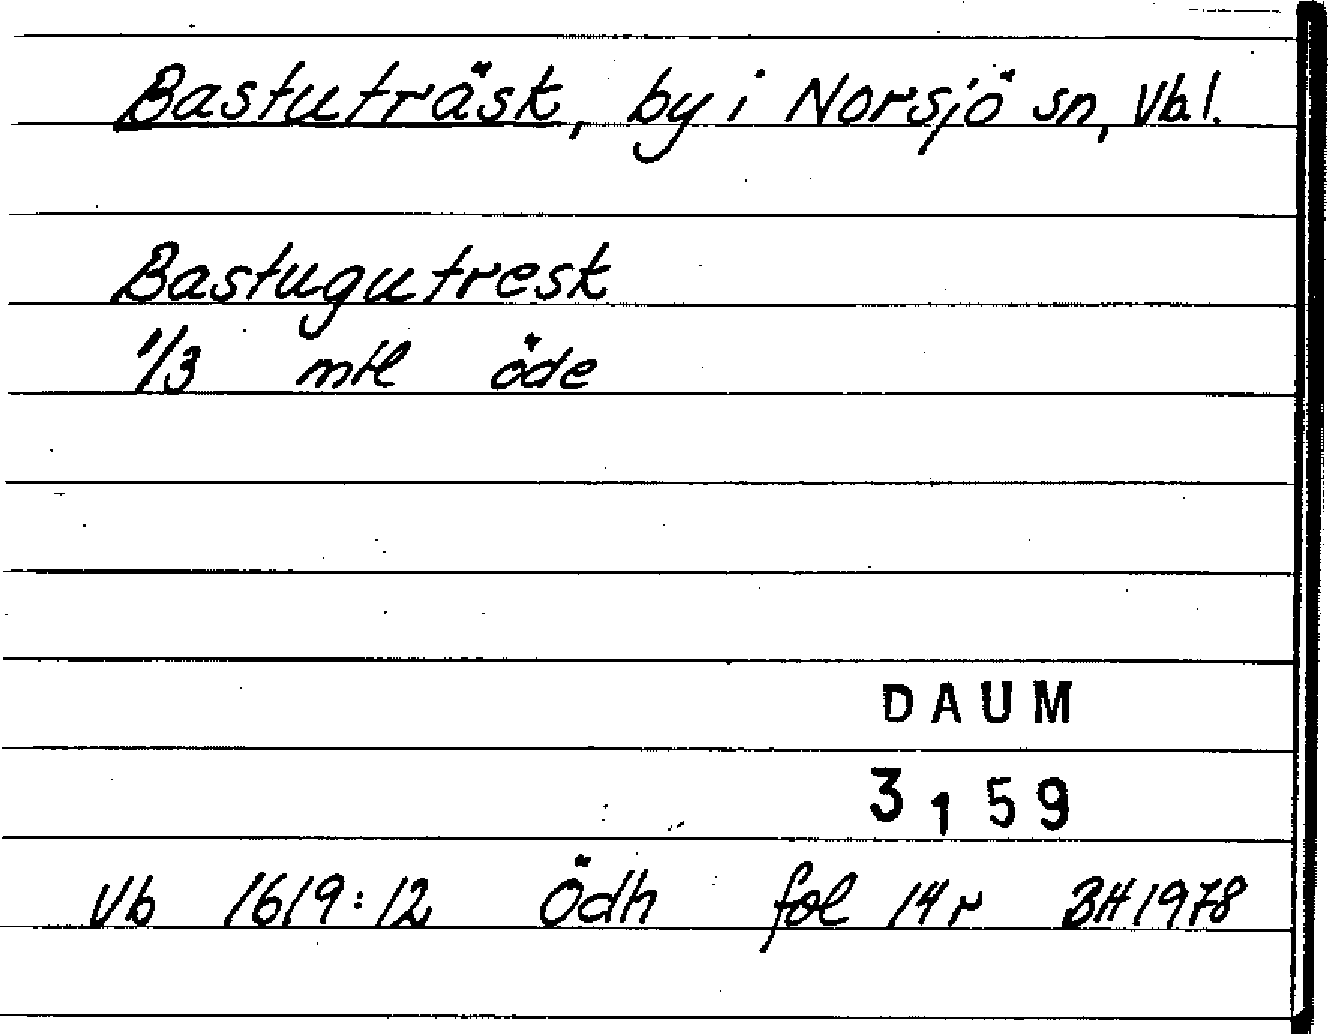 Bastuträsk, by i Norsjö sn, Vb l.
Bastugutresk
1/3 mtl öde
DAUM
3159
Vb 1619:12 Ödh fol 14 r BH 1978